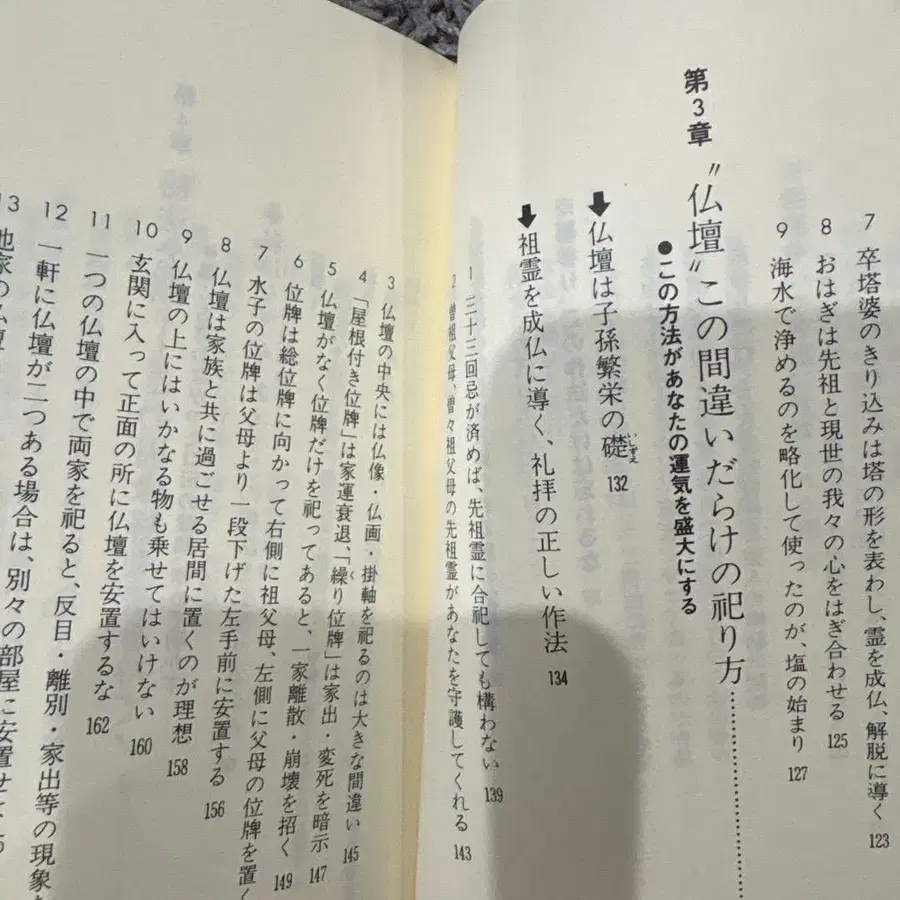 7 卒塔婆のきり込みは塔の形を表わし、霊を成仏、解脱に導く 123
8 おはぎは先祖と現世の我々の心をはぎ合わせる 125
9 海水で浄めるのを略化して使ったのが、塩の始まり 127
第3章 “仏壇”この間違いだらけの祀り方
●この方法があなたの運気を盛大にする
⬇仏壇は子孫繁栄の礎 132
いしずえ
⬇祖霊を成仏に導く、礼拝の正しい作法 134
1 三十三回忌が済めば、先祖霊に合祀しても構わない 139
2 曽祖父母、曽々祖父母の先祖霊があなたを守護してくれる 143
3 仏壇の中央には仏像・仏画・掛軸を祀るのは大きな間違い 145
4 「屋根付き位牌」は家運衰退、「繰り位牌」は家出・変死を暗示 147
く
5 仏壇がなく位牌だけを祀ってあると、一家離散・崩壊を招く 149
6 位牌は総位牌に向かって右側に祖父母、左側に父母の位牌を置く
7 水子の位牌は父母より一段下げた左手前に安置する 156
8 仏壇は家族と共に過ごせる居間に置くのが理想 158
9 仏壇の上にはいかなる物も乗せてはいけない 160
10 玄関に入って正面の所に仏壇を安置するな 162
11 一つの仏壇の中で両家を祀ると、反目・離別・家出等の現象
12 一軒に仏壇が二つある場合は、別々の部屋に安置せよ
13 他家の仏壇